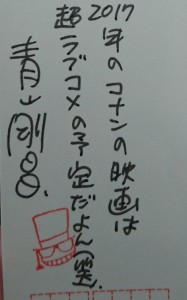 2017
年のコナンの映画は
超ラブコメの予定だよん(笑)
青山剛昌